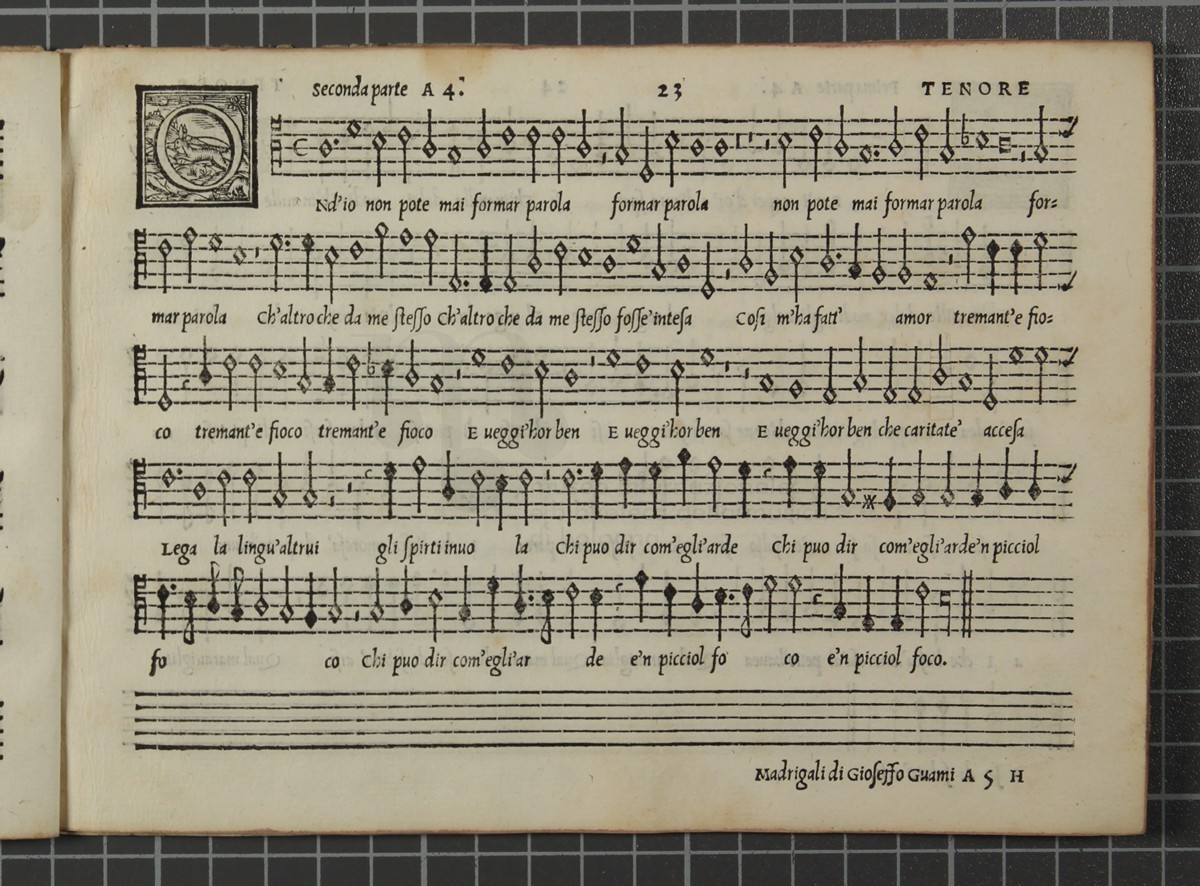 Seconda parte A 4. 23 TENORE
ONd'io non pote mai formar parola formar parola non pote mai formar parola for=
mar parola Ch'altro che da me stesso Ch'altro che da me stesso fosse'intesa Cosi m'ha fatt' amor tremant'e fio=
co tremant'e fioco tremant'e fioco E ueggi'hor ben E ueggi'hor ben E ueggi'hor ben che caritate' accesa
Lega la lingu'altrui gli spirti inuo la Chi puo dir com'egli'arde Chi puo dir com'egli'arde'n picciol
fo co Chi puo dir com'egli'ar de e'n picciol fo co e'n picciol foco.
Madrigali di Gioseffo Guami A 5 H